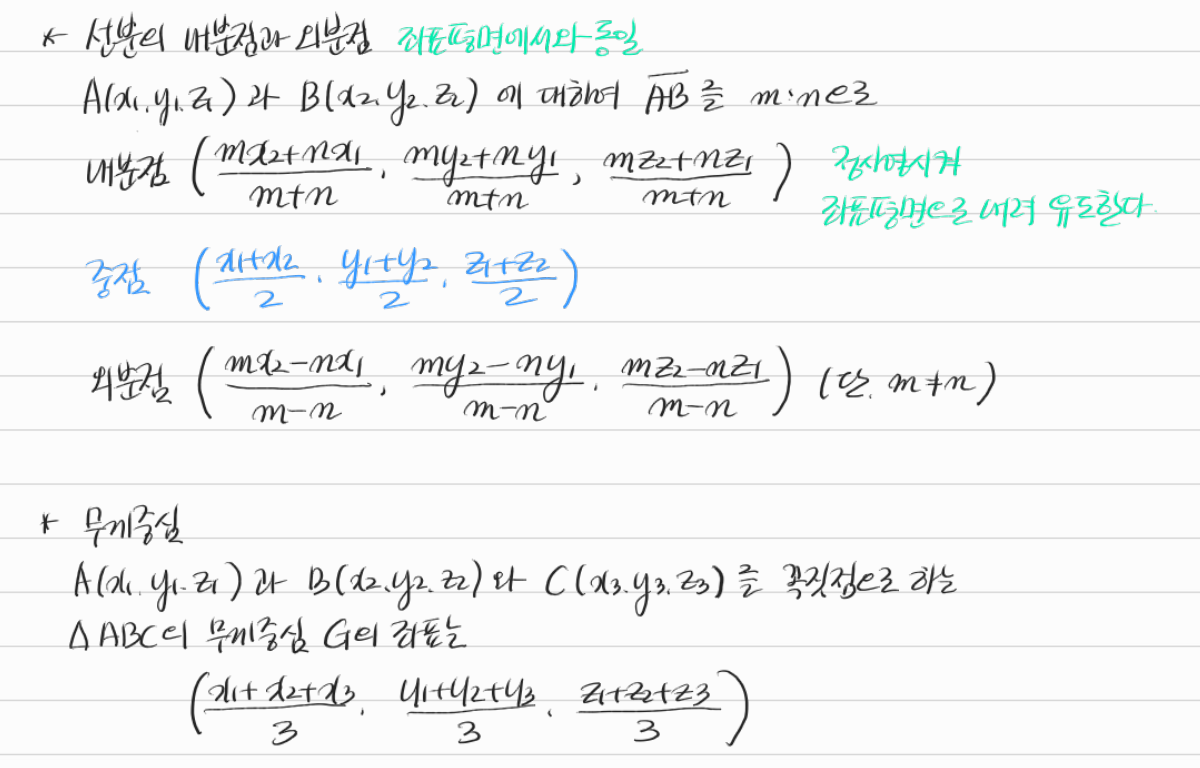 * 선분의 내분점과 외분점 좌표평면에서와 동일
A(x₁, y₁, z₁) 과 B(x₂, y₂, z₂) 에 대하여 \overline{AB} 를 m:n으로
내분점 ( \frac{mx₂+nx₁}{m+n}, \frac{my₂+ny₁}{m+n}, \frac{mz₂+nz₁}{m+n} ) 정사영시켜
좌표평면으로 내려 유도한다.
중점 ( \frac{x₁+x₂}{2}, \frac{y₁+y₂}{2}, \frac{z₁+z₂}{2} )
외분점 ( \frac{mx₂-nx₁}{m-n}, \frac{my₂-ny₁}{m-n}, \frac{mz₂-nz₁}{m-n} ) (단, m≠n)
* 무게중심
A(x₁, y₁, z₁) 과 B(x₂, y₂, z₂) 와 C(x₃, y₃, z₃) 를 꼭짓점으로 하는
△ABC의 무게중심 G의 좌표는
( \frac{x₁+x₂+x₃}{3}, \frac{y₁+y₂+y₃}{3}, \frac{z₁+z₂+z₃}{3} )